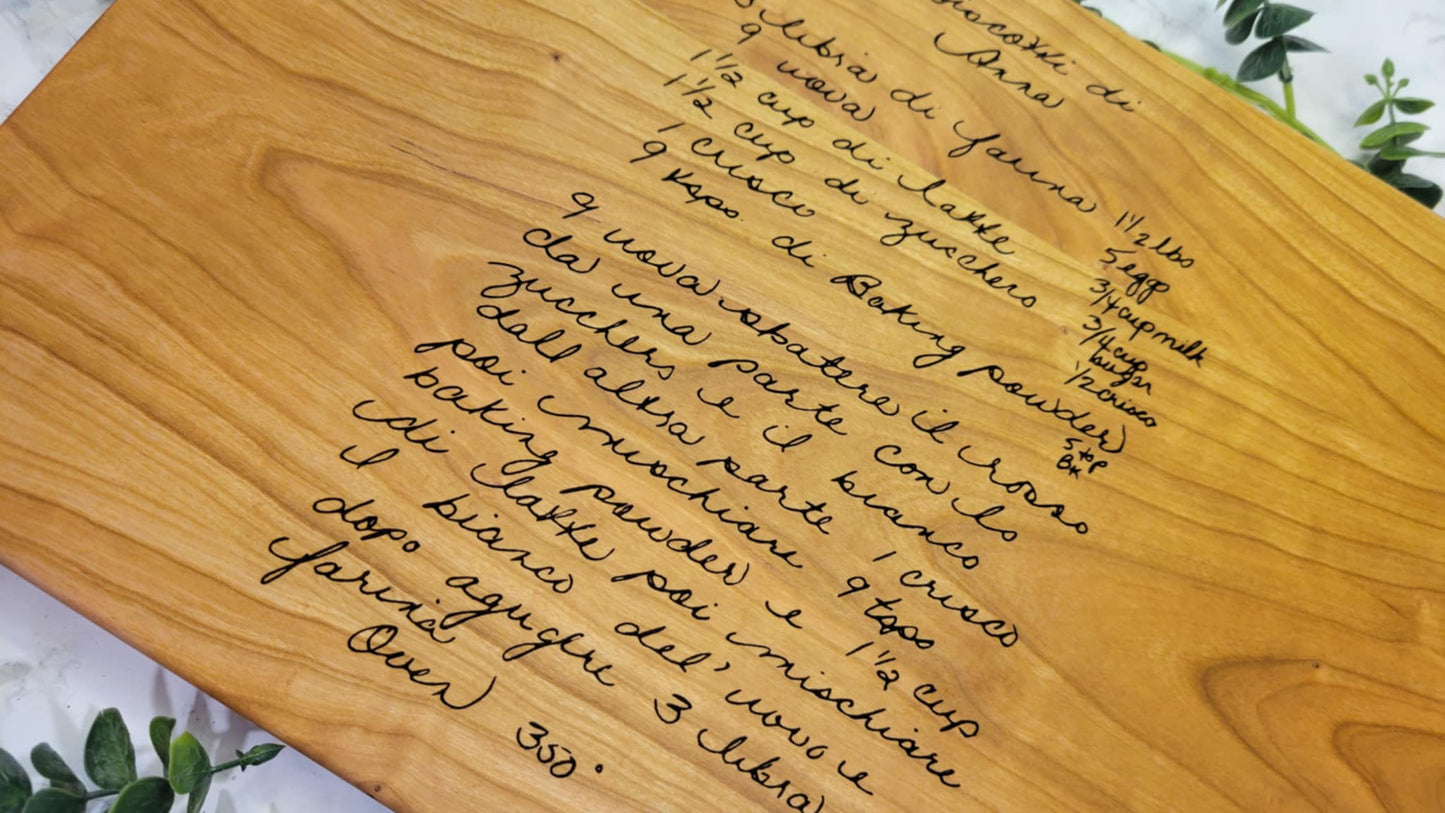 Biscotti di
Anna
3 libra di farina 1 1/2 lbs
9 uova 5 eggs
1 1/2 cup di latte 3/4 cup milk
1 1/2 cup di zucchero 3/4 cup sugar
1 crisco 1/2 crisco
9 tsps. di Baking powder 5 tsp
9 uova sbatere il rosso
da una parte con lo
zucchero e il bianco
dall altra parte 1 crisco
poi mischiare 9 tsps
baking powder e 1 1/2 cup
di latte poi mischiare
il bianco del' uovo e
dopo agugere 3 libra
farina
Oven 350°